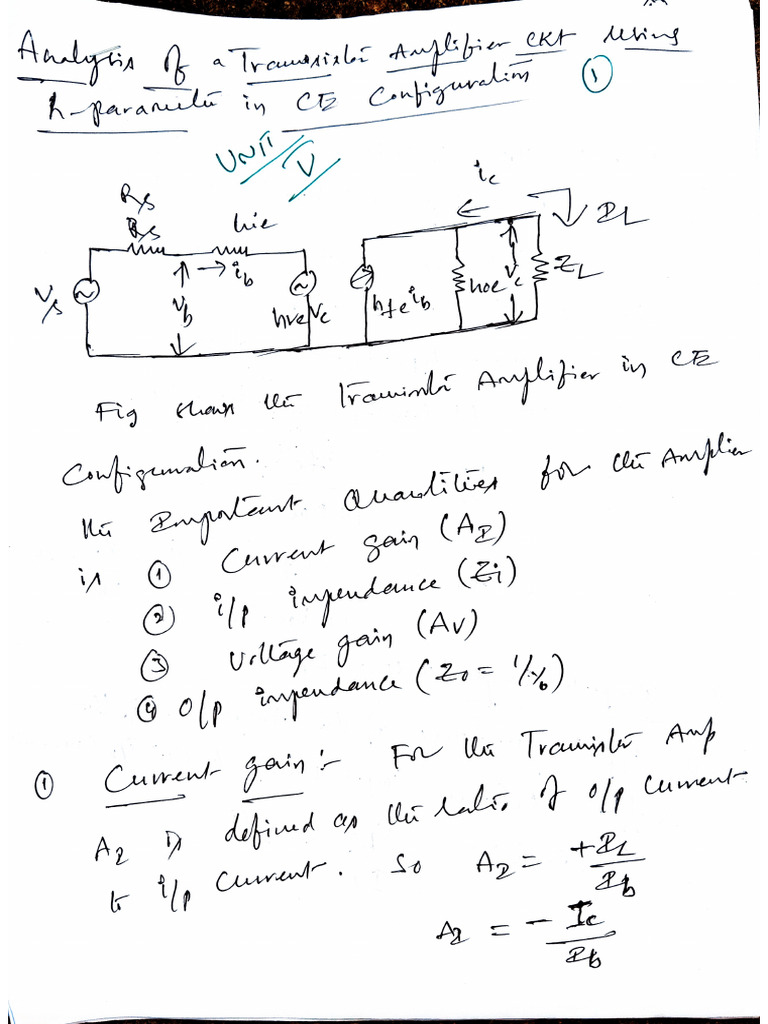 Analysis of a Transistor Amplifier CKT Using
h-parameter in CE Configuration ①
UNIT/V
Rs
Rs hie
ic
IL
Vs
Vb
ib
hreVc
hfe ib
hoe
Vc
ZL
Fig shows the Transistor Amplifier in CE
Configuration.
the Important Quantities for the Amplier
is ① Current gain (AI)
② i/p impendance (Zi)
③ Voltage gain (AV)
④ O/p impendance (Zo = 1/Yo)
① Current gain :- For the Transistor Amp
AI is defined as the ratio of o/p current
to i/p current. So AI = +IL/Ib
AI = - Ic/Ib